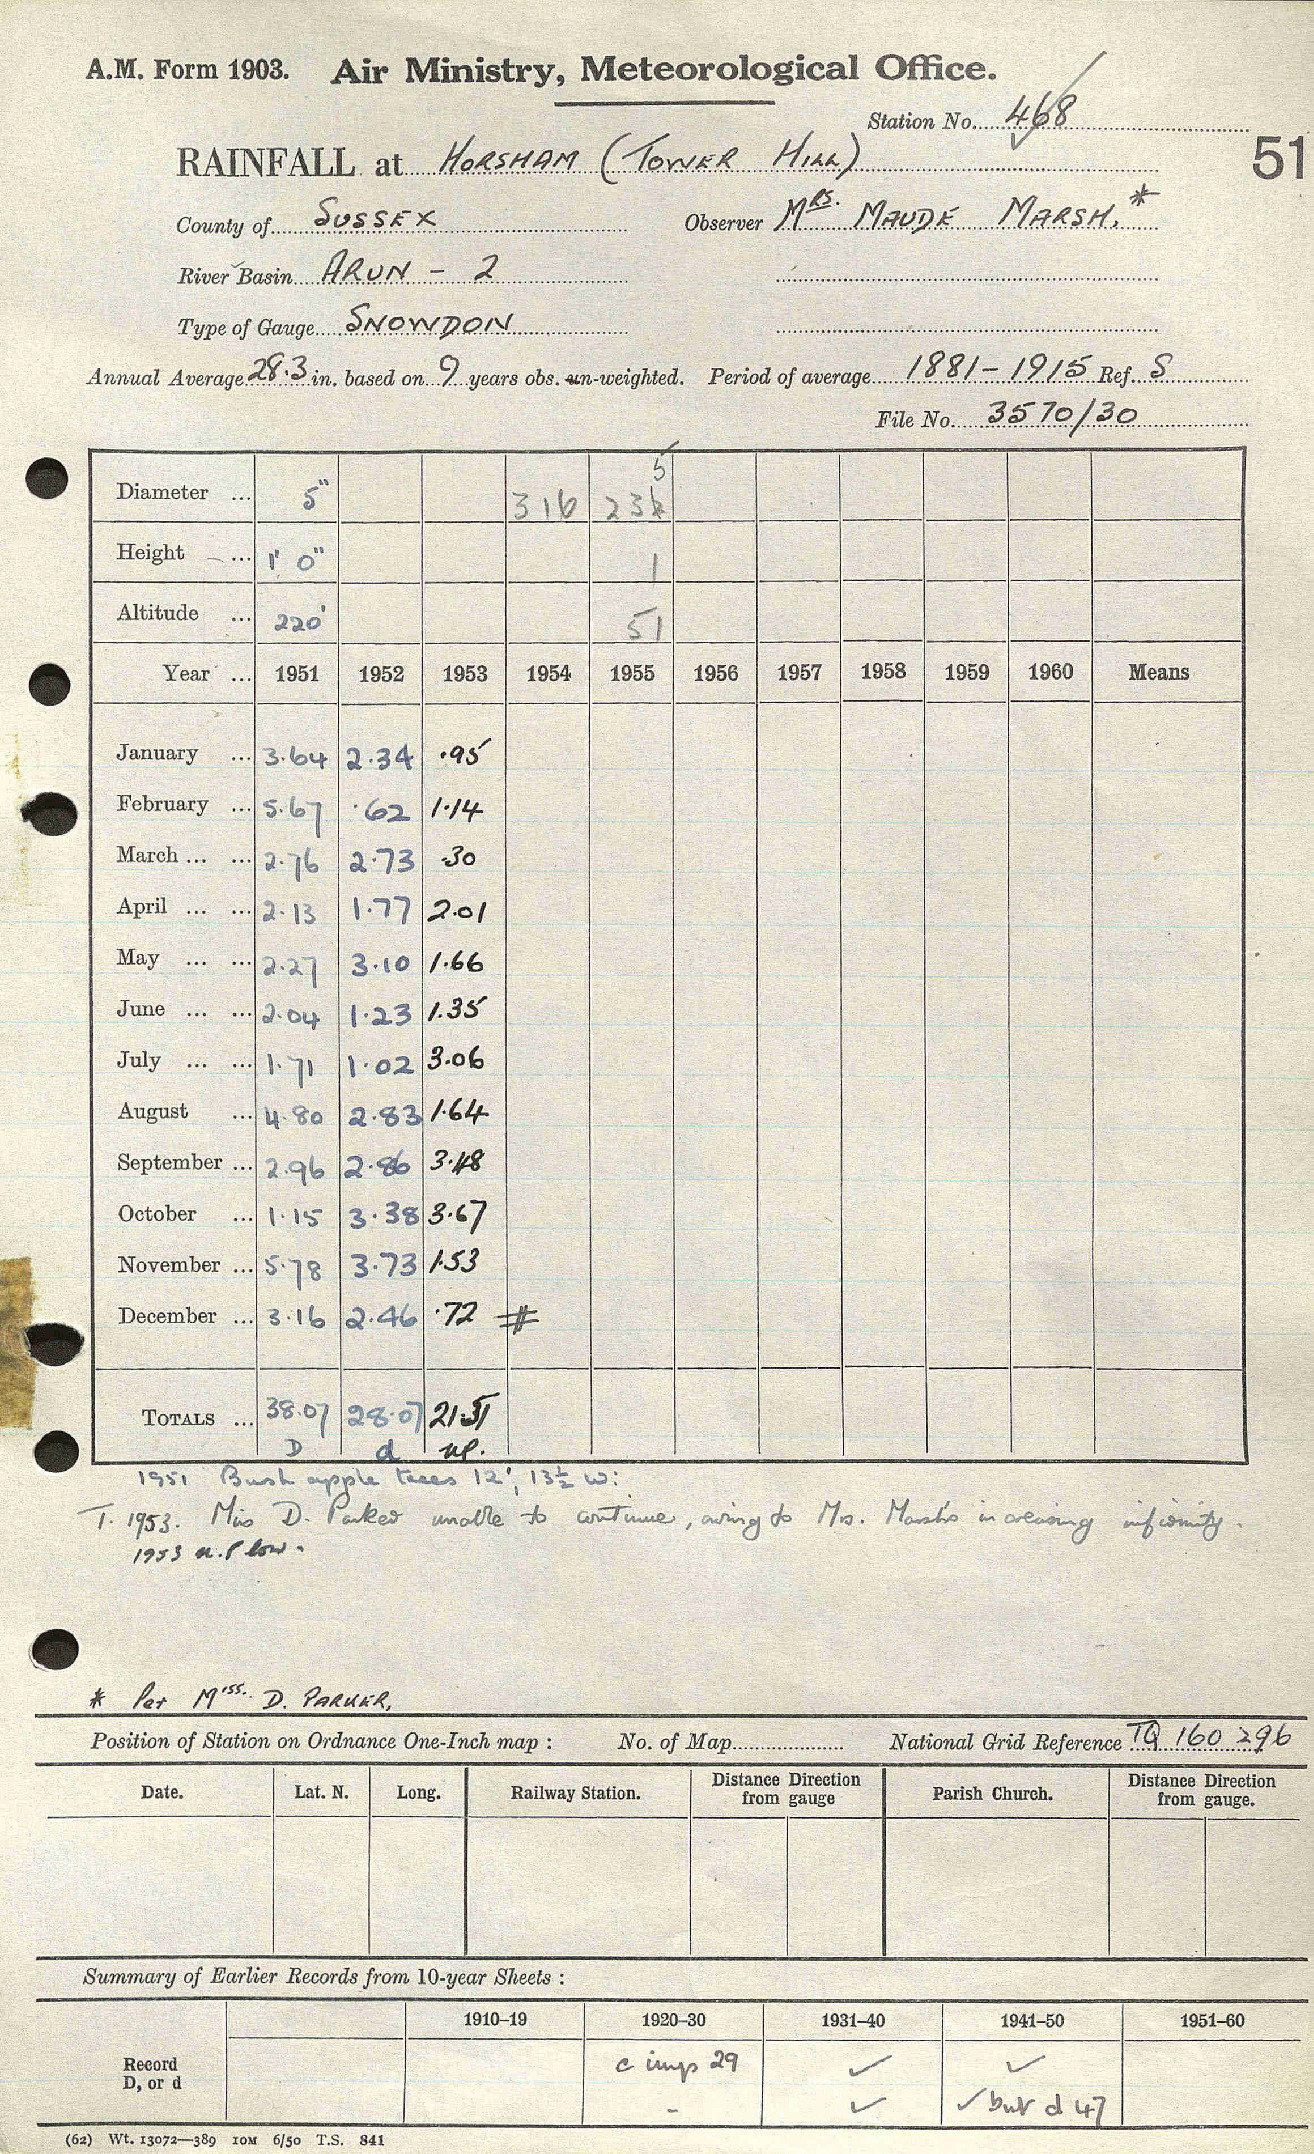 A.M. Form 1903. Air Ministry, Meteorological Office.
Station No. 468
51
RAINFALL at HORSHAM (TOWER HILL)
County of SUSSEX Observer MRS. MAUDE MARSH. *
River Basin ARUN - 2
Type of Gauge SNOWDON
Annual Average 28.3 in. based on 9 years obs. un-weighted. Period of average 1881-1915 Ref. S
File No. 3570/30
5
Diameter ... 5" 316 23
Height ... 1' 0" 1
Altitude ... 220' 51
Year ... 1951 1952 1953 1954 1955 1956 1957 1958 1959 1960 Means
January ... 3.64 2.34 .95
February ... 5.67 .62 1.14
March ... ... 2.76 2.73 .30
April ... ... 2.13 1.77 2.01
May ... ... 2.27 3.10 1.66
June ... ... 2.04 1.23 1.35
July ... ... 1.71 1.02 3.06
August ... 4.80 2.83 1.64
September ... 2.96 2.86 3.48
October ... 1.15 3.38 3.67
November ... 5.78 3.73 1.53
December ... 3.16 2.46 .72 #
TOTALS ... 38.07 28.07 21.51
D d np.
1951 Bush apple trees 12', 13½ W:
T. 1953. Miss D. Parker unable to continue, owing to Mrs. Marsh's increasing infirmity.
1953 n.P low.
* Per Miss. D. PARKER,
Position of Station on Ordnance One-Inch map : No. of Map National Grid Reference TQ 160 296
Date. Lat. N. Long. Railway Station. Distance Direction from gauge Parish Church. Distance Direction from gauge.
Summary of Earlier Records from 10-year Sheets :
1910–19 1920–30 1931–40 1941–50 1951–60
Record c imps 29 ✓ ✓
D, or d - ✓ ✓ but d 47
(62) Wt. 13072—389 10M 6/50 T.S. 841